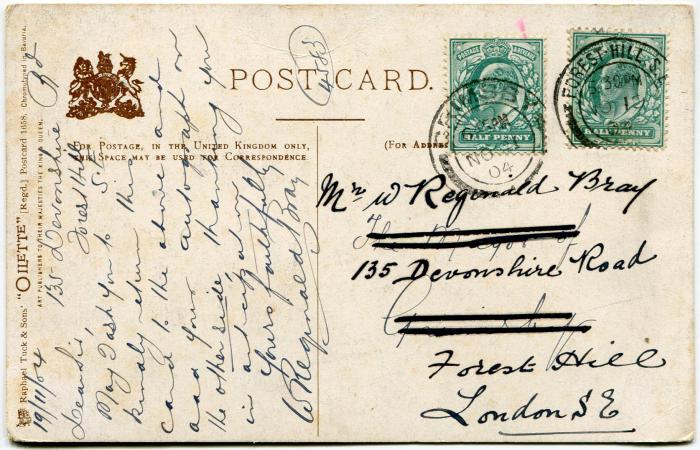 POST CARD.
FOR POSTAGE, IN THE UNITED KINGDOM ONLY,
THIS SPACE MAY BE USED FOR CORRESPONDENCE
(FOR ADDRESS
Raphael Tuck & Sons' "OILETTE" [Regd.] Postcard 1658. Chromographed in Bavaria.
ART PUBLISHERS TO THEIR MAJESTIES THE KING & QUEEN.
19/11/04 135 Devonshire Rd
Forest Hill
May I ask you to
kindly return this
card to the above and
add your autograph on
the other side thanking you
in anticipation
Yours faithfully
W Reginald Bray
POSTAGE
HALF PENNY
NO
04
FOREST-HILL.S.E.
HALF PENNY
Mr W Reginald Bray
The Mayor of
135 Devonshire Road
Grimsby
Forest Hill
London SE